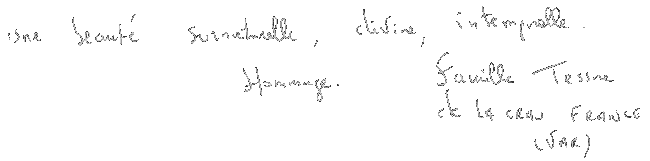 une beauté surnaturelle, divine, intemporelle.
Hommage. Famille Tessne
de LA CRAU FRANCE
(VAR)